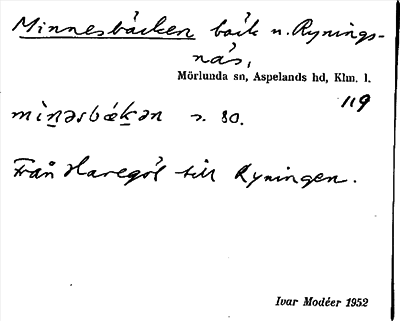 Minnesbäcken bäck n. Rynings-
näs,
Mörlunda sn, Aspelands hd, Klm. l.
119
mìn̠əsbæk̠ən s. 80.
Från Haregöl till Ryningen.
Ivar Modéer 1952